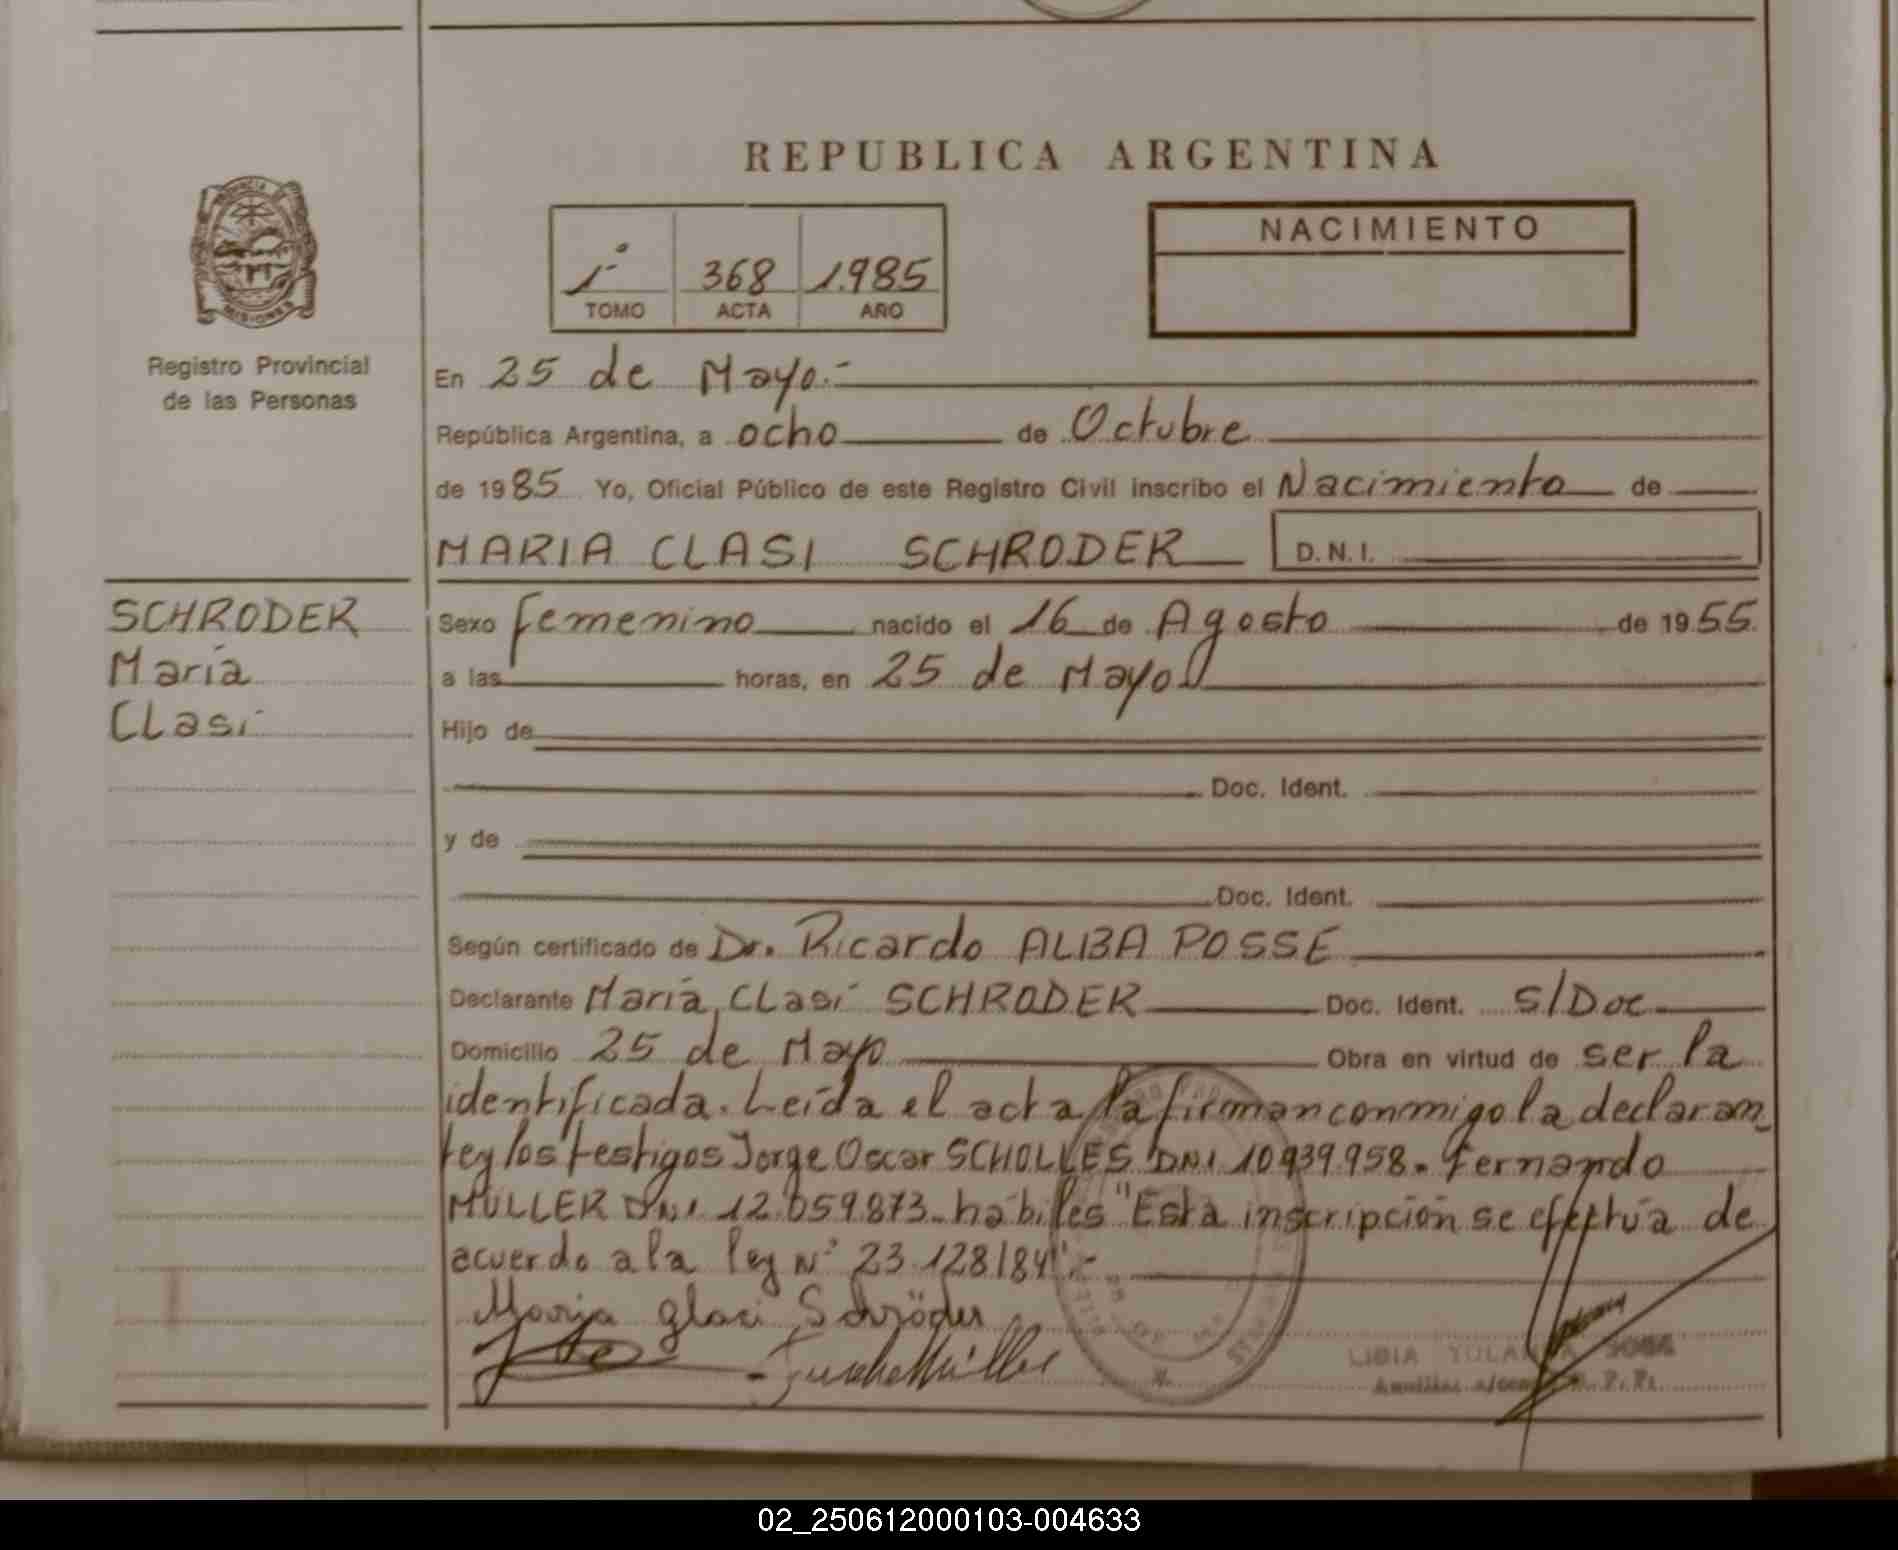 REPUBLICA ARGENTINA
PROVINCIA DE
MISIONES
Registro Provincial
de las Personas
1º 368 1.985
TOMO ACTA AÑO
NACIMIENTO
En 25 de Mayo.-
República Argentina, a ocho de Octubre
de 1985 Yo, Oficial Público de este Registro Civil inscribo el Nacimiento de
MARIA CLASI SCHRODER D.N.I.
SCHRODER
María
CLasi
Sexo femenino nacido el 16 de Agosto de 1955
a las horas, en 25 de Mayo
Hijo de
Doc. Ident.
y de
Doc. Ident.
Según certificado de Dr. Ricardo ALBA POSSE
Declarante María CLasi SCHRODER Doc. Ident. S/Doc
Domicilio 25 de Mayo Obra en virtud de ser la
identificada. Leída el acta la firman conmigo la declaran
te y los testigos Jorge Oscar SCHOLLES DNI 10.939.958. Fernando
MULLER DNI 12.059.873. hábiles "Esta inscripción se efectúa de
acuerdo a la ley Nº 23.128/84".-
Marija Glaci Schröder
LIBIA
02_250612000103-004633